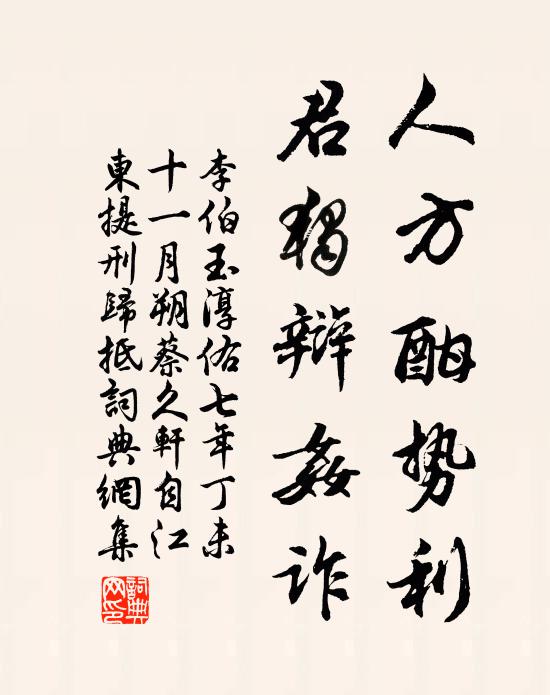 人方酣势利
君独辩姦诈
李伯玉淳佑七年丁未
十一月朔蔡久軒自江
東提刑歸抵詞典網集
詞典網印